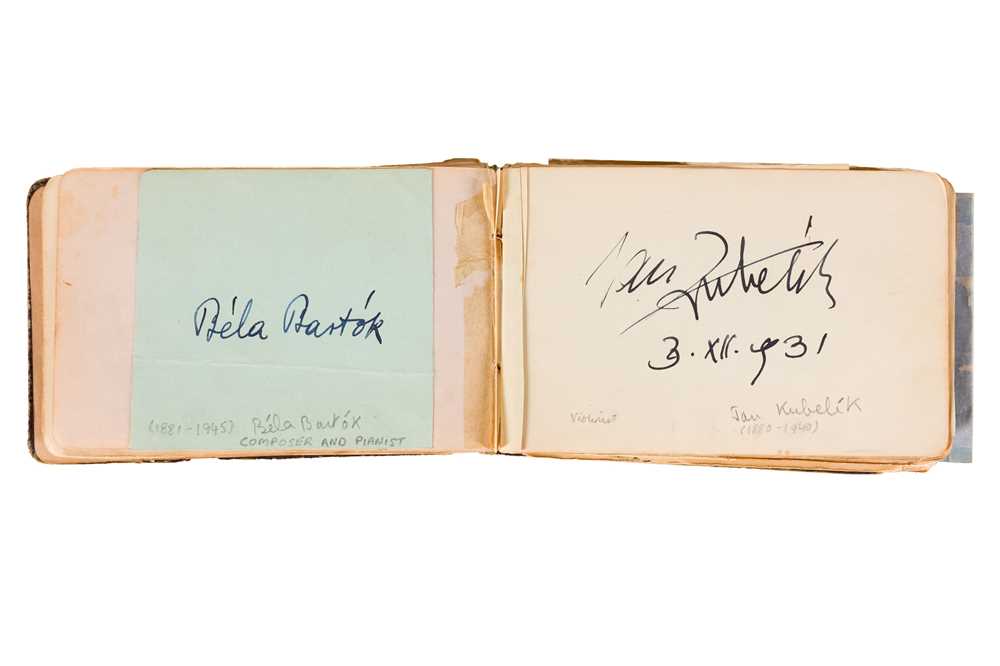 Béla Bartók
(1881-1945) Béla Bartók
COMPOSER AND PIANIST
Jan Kubelík
3. XII. 931
Violinist Jan Kubelík
(1880-1940)